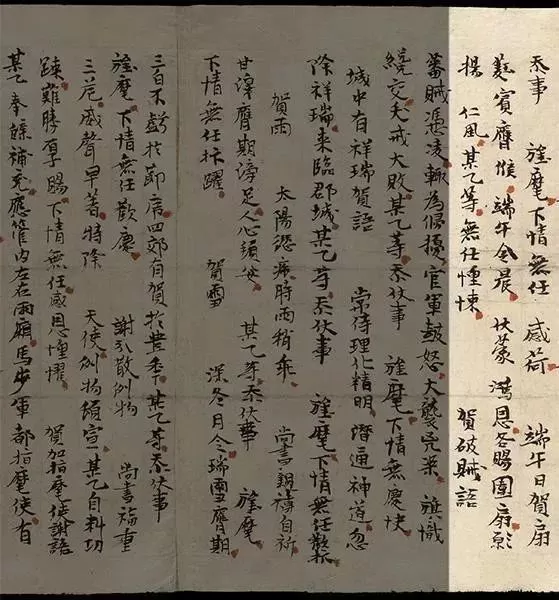 忝事　旌麾下情無任　感荷　端午日賀扇
蕤賓膺候端午令晨　伏蒙　鴻恩各賜團扇願
揚　仁風某乙等無任憧悚　賀破賊語
蕃賊憑凌輙為侵擾官軍鼓怒大襲兇渠旌旗
纔交夭戒大敗某乙等忝伏事　旌麾下情無慶快
城中有祥瑞賀語　常侍理化精明潛通神道忽
降祥瑞来臨郡城某乙等忝伏事　旌麾下情無任歡抃
賀雨　太陽愆序時雨稍乖　尚書親禱自祈
甘澤膺期滂足人心頓安　某乙等忝伏事　旌麾
下情無任抃躍　賀雪　深冬月令瑞雪膺期
三百不虧於節席四郊有賀於豊年某乙等忝伏事
旌麾下情無任歡慶　謝引散例物　尚書福重
三危威聲早著特降　天使例物頒宣某乙自料功
踈難勝厚賜下情無任感恩憧懼　賀加指麾使謝語
某乙奉牒補充應管內左右兩廂馬步軍都指麾使有